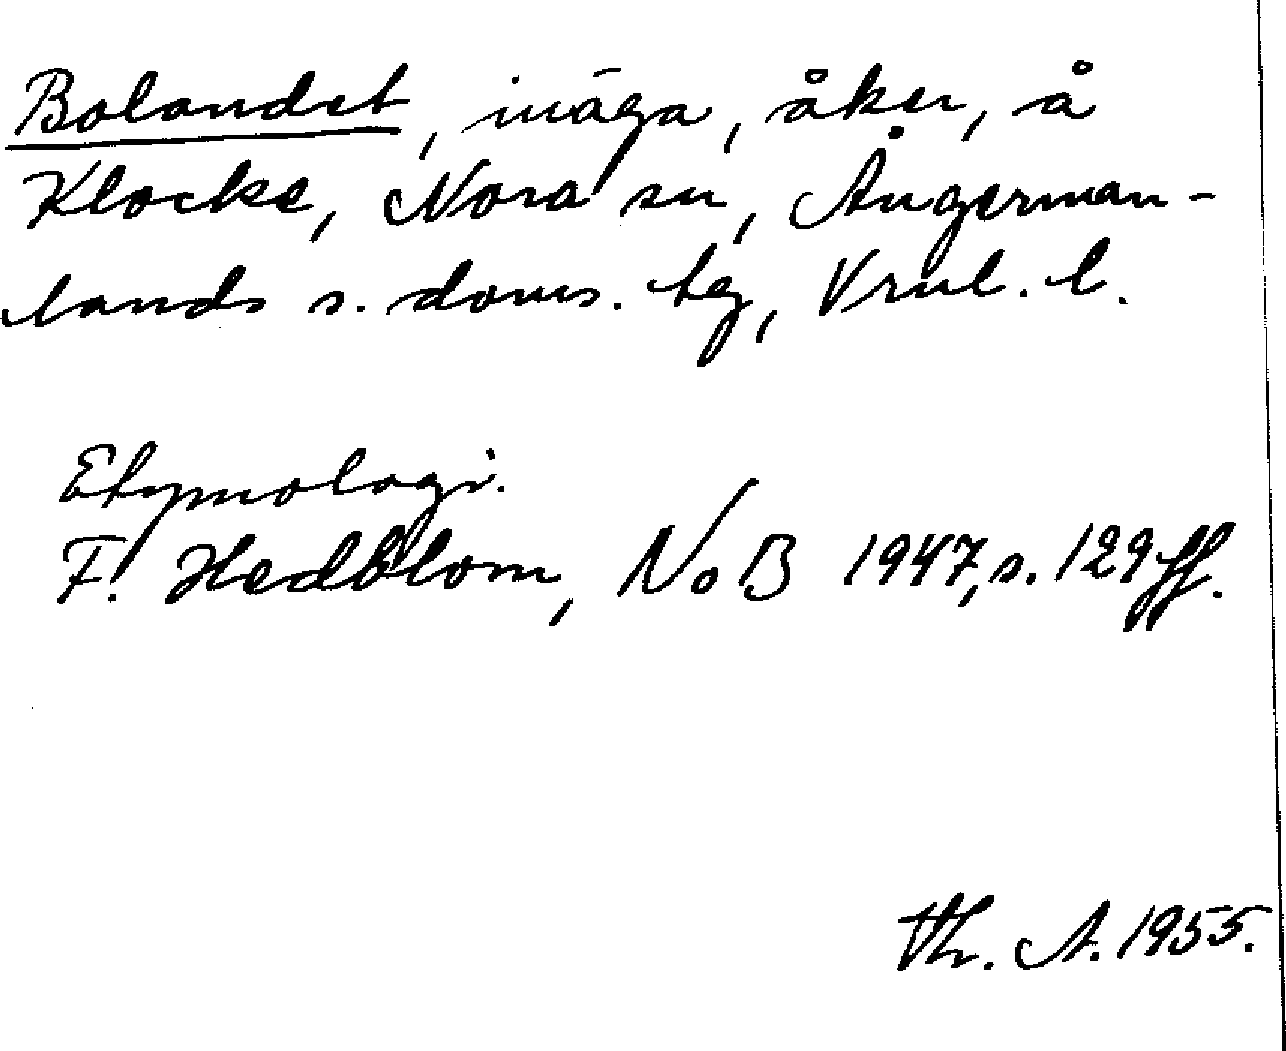 Bolandet, inäga, åker, å
Klocke, Nora sn, Ångerman-
lands s. doms. tg, Vrnl. l.
Etymologi.
F. Hedblom, NoB 1947, s. 129 ff.
Th. A. 1955.